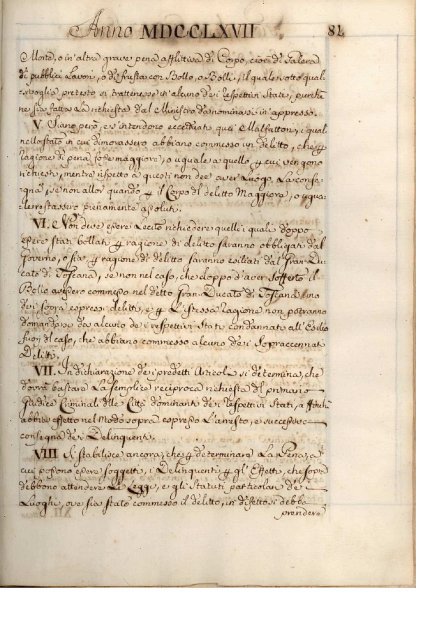 Anno MDCCLXVII 81
Morte, o in altra grave pena afflittiva di Corpo, cioè di Galera
di pubblici Lavori, o di frusta con Bollo, o Bolli, il qual sotto qual
sivoglia pretesto si trattenesse in alcuno dei respettivi Stati, purchè
ne sia fatta la richiesta dal Ministro da nominarsi in appresso.
V. Siano però, e s'intendono eccettuati quei Malfattori, i quali
nello Stato in cui dimorassero abbiano commesso un delitto, che
ragione di pena sosse maggiore, o uguale a quello, cui vengono
richiesti, mentre rispetto a questi non dee aver Luogo La consegna
gna, se non allo quando il Corpo di delitto Maggiore, o uguale
le restassero pienamente assoluti.
VI. Non deve essere Lecito richiedere quelli i quali doppo
essere stati bollati ragione di delitto saranno obbligati dal
Governo, o sia ragione di delitto saranno esiliati dal Gran Du
cato di Toscana, se non nel caso, che doppo d'aver sofferto il
Bollo avessero commesso nel detto Gran Ducato di Toscana Uno
dei sopra espressi delitti, e L'istessa ragione non potranno
domandarsi da alcuno dei respettivi Stati condannati all'Esilio
fuori del caso, che abbiano commesso alcuno dei Sopraccennati
Delitti.
VII. In dichiarazione dei predetti Articoli si determina, che
dovrà bastare La semplice reciproca richiesta del primario
Giudice Criminale delle Città dominanti dei respettivi Stati, a
abbia effetto nel Modo sopra espresso L'arresto, e successiva
consegna dei Delinquenti.
VIII Si stabilisce ancora, che determinare La Pena, a
cui possono essere soggetti i Delinquenti, gl'Effetti, che sopra
debbono attendere Le Leggi, e gli Statuti particolari de
Luoghi, ove sia stato commesso il delitto, in difetto si debba
prendere